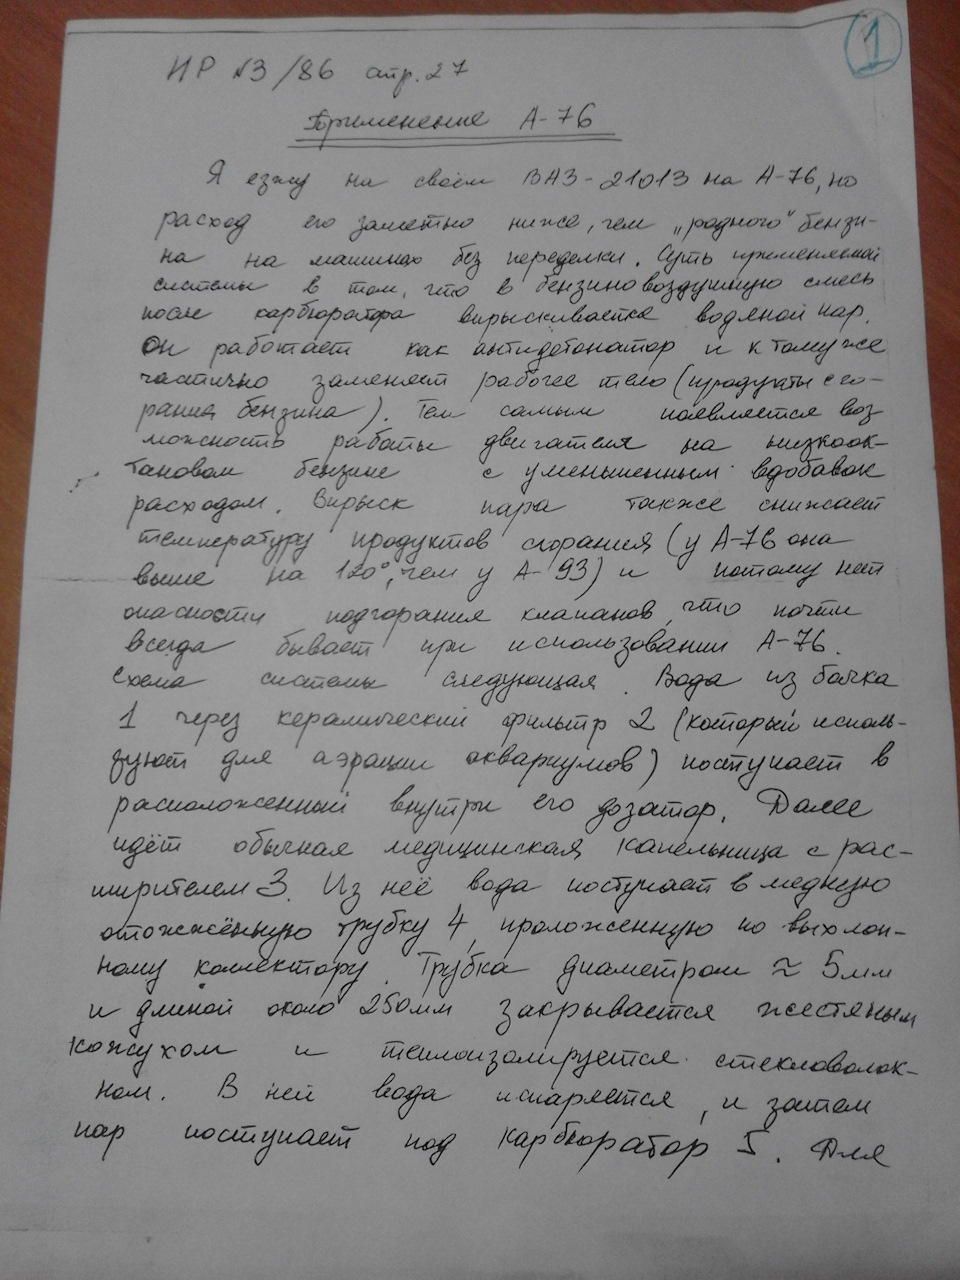 1
ИР №3/86 стр. 27
Применение А-76
Я езжу на своём ВАЗ-21013 на А-76, но
расход его заметно ниже, чем „родного" бензи-
на на машинах без переделки. Суть применяемой
системы в том, что в бензиновоздушную смесь
после карбюратора впрыскивается водяной пар.
Он работает как антидетонатор и к тому же
частично заменяет рабочее тело (продукты сго-
рания бензина). Тем самым появляется воз-
можность работы двигателя на низкоок-
тановом бензине с уменьшенным вдобавок
расходом. Впрыск пара также снижает
температуру продуктов сгорания (у А-76 она
выше на 120°, чем у А-93) и потому нет
опасности подгорания клапанов, что почти
всегда бывает при использовании А-76.
Схема системы следующая. Вода из бачка
1 через керамический фильтр 2 (который исполь-
зуют для аэрации аквариумов) поступает в
расположенный внутри его дозатор. Далее
идёт обычная медицинская капельница с рас-
ширителем 3. Из неё вода поступает в медную
отожжённую трубку 4, проложенную по выхлоп-
ному коллектору. Трубка диаметром ≈ 5мм
и длиной около 250мм закрывается жестяным
кожухом и теплоизолируется стекловолок-
ном. В ней вода испаряется, и затем
пар поступает под карбюратор 5. Для